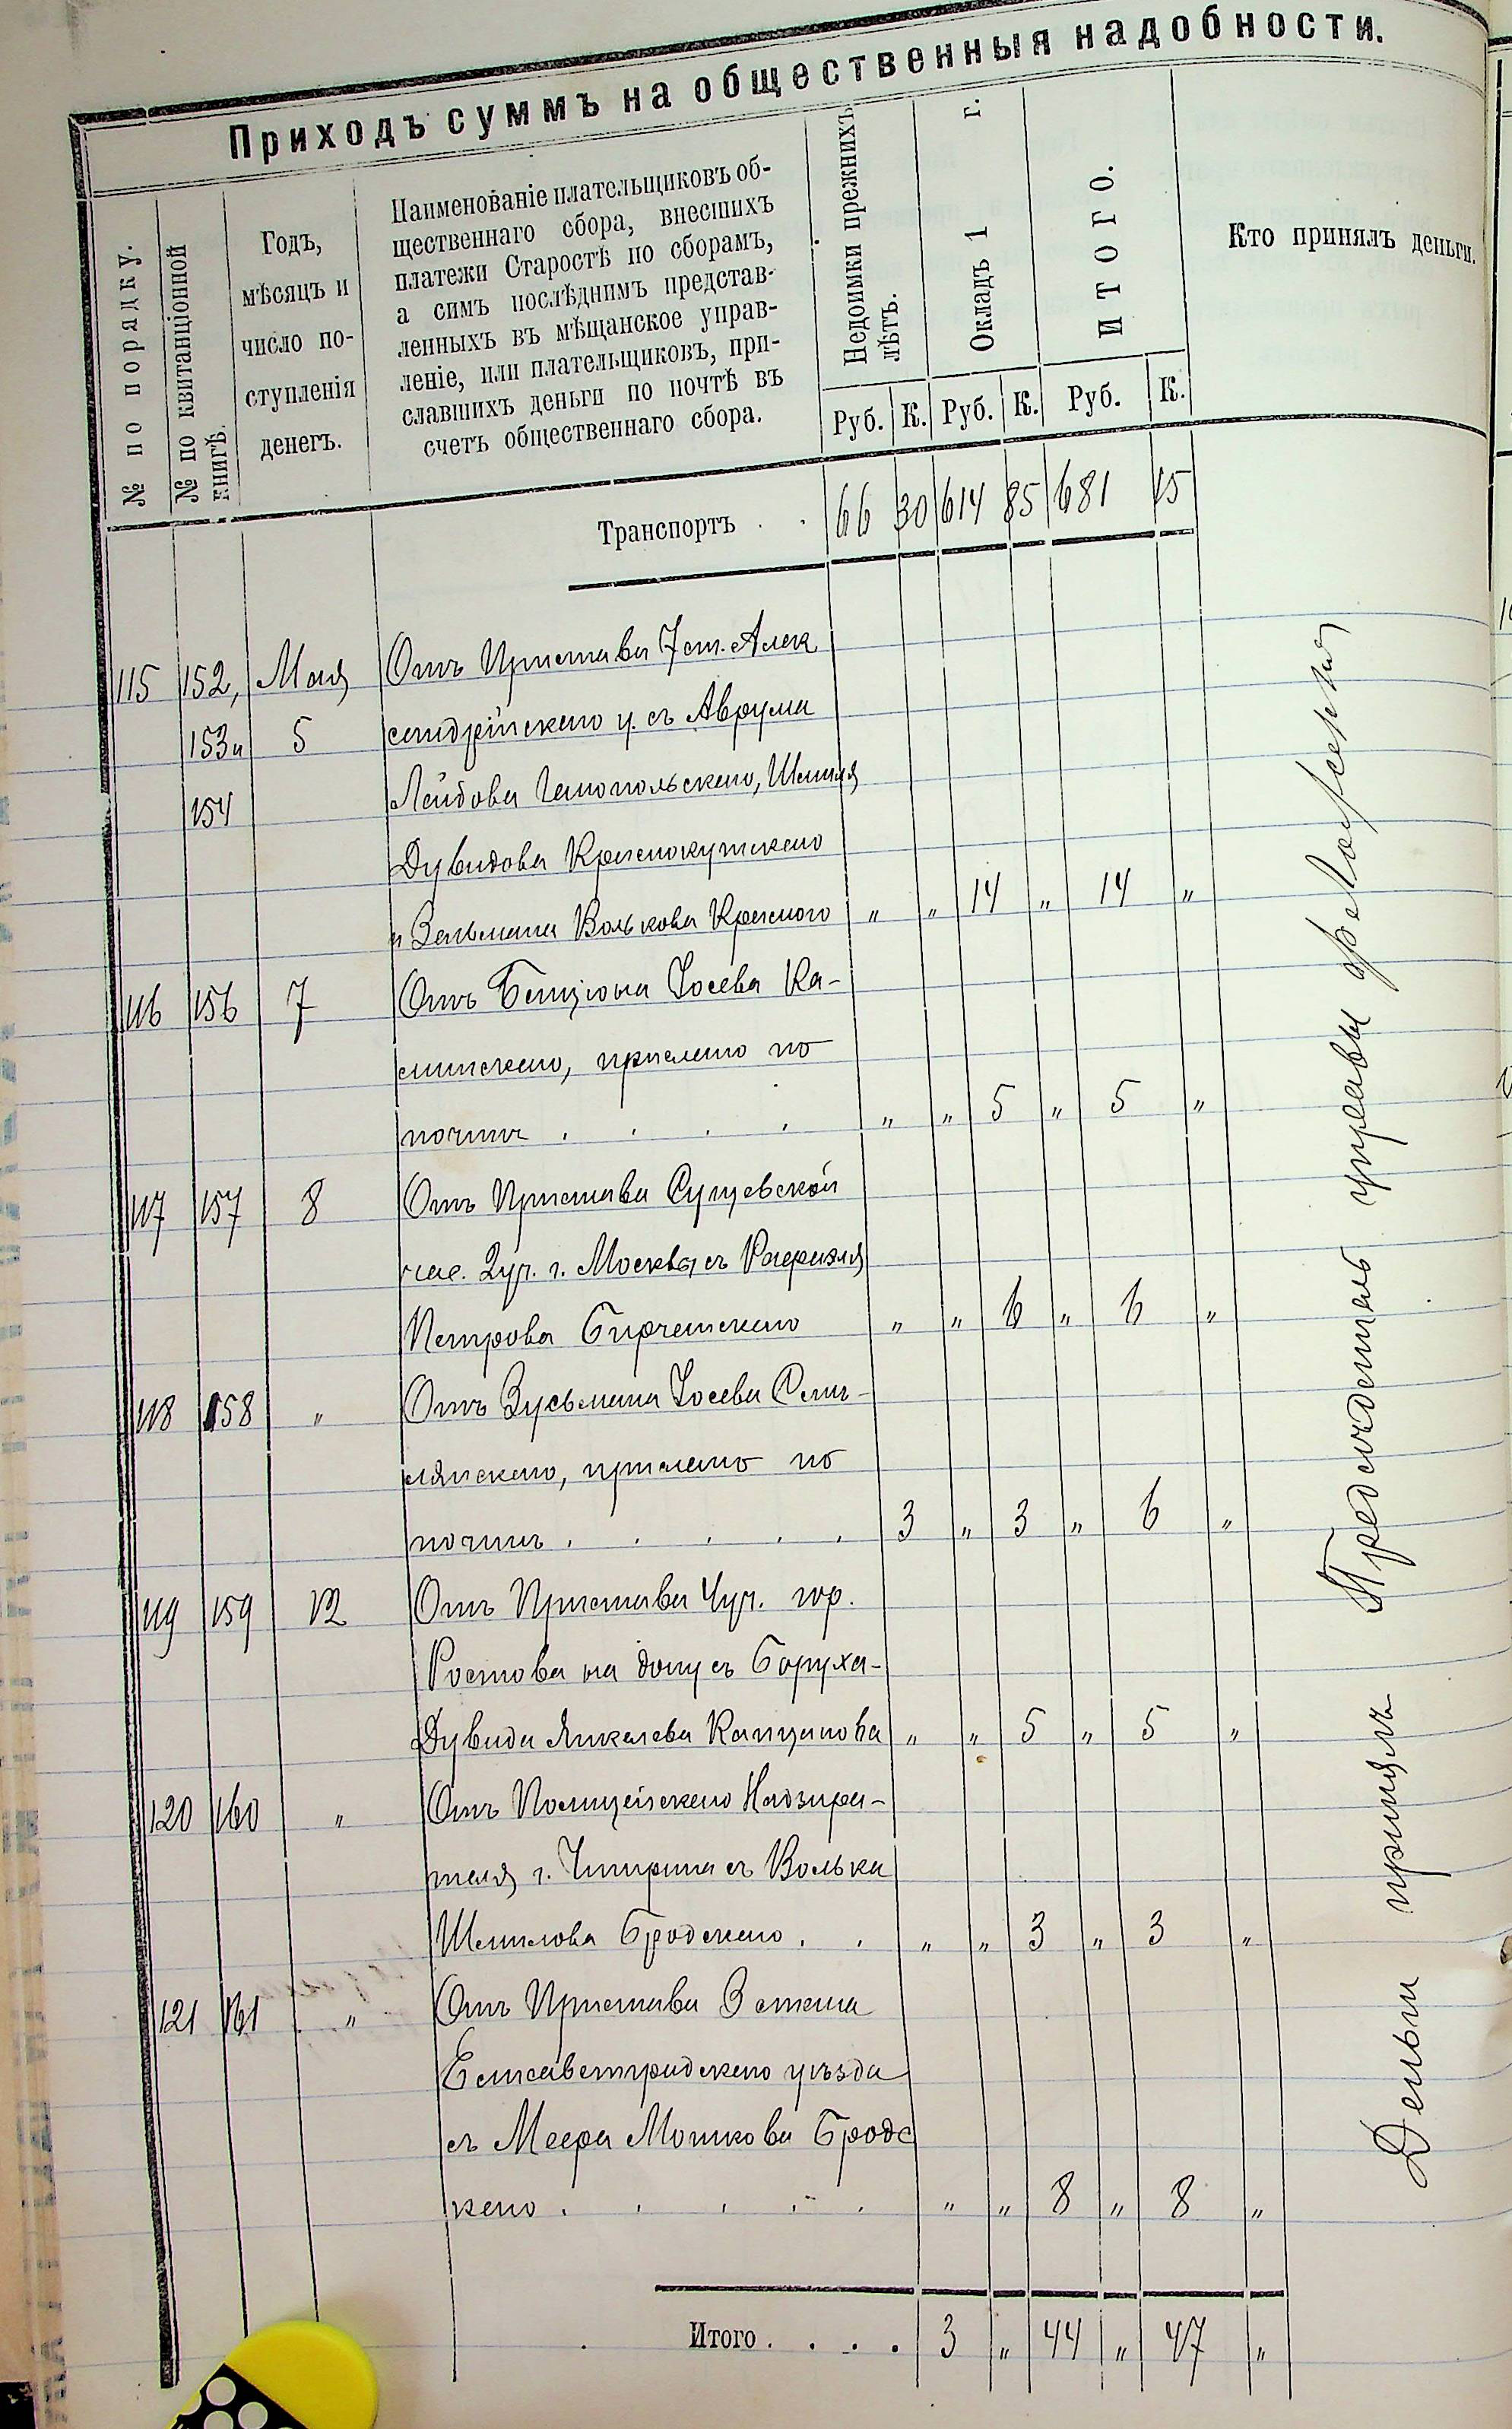 Приходъ суммъ на общественныя надобности.
№ по порядку.
№ по квитанціонной книгѣ.
Годъ, мѣсяцъ и число поступленія денегъ.
Наименованіе плательщиковъ об-
щественнаго сбора, внесшихъ
платежи Старостѣ по сборамъ,
а симъ послѣднимъ представ-
ленныхъ въ мѣщанское управ-
леніе, или плательщиковъ, при-
славшихъ деньги по почтѣ въ
счетъ общественнаго сбора.
Недоимки прежнихъ лѣтъ.
Окладъ 1 г.
ИТОГО.
Кто принялъ деньги.
Руб. К. Руб. К. Руб. К.
Транспортъ . . 66 30 614 85 681 15
115 152, Мая Отъ Пристава 7 ст. Алек
153 и 5 сандрійскаго у. съ Аврума
154 Лейбова Шемиля
Дувидова Краснокутскаго
и Зельмана Волькова Красного " " 14 " 14 "
116 156 7 Отъ Бенціона Іосева Ка-
минскаго, прислано по
почтѣ . . . . " " 5 " 5 "
117 157 8 Отъ Пристава Сущевской
час. 2 уч. г. Москвы съ Рафаила
Петрова " " 6 " 6 "
118 158 " Отъ Зусьмана Іосева Смѣ-
лянскаго, прислано по
почтѣ . . . . . 3 " 3 " 6 "
119 159 12 Отъ Пристава 4 уч. гор.
Ростова на дону съ Боруха-
Дувида Янкелева Капцанова " " 5 " 5 "
120 160 " Отъ Полицейскаго Надзира-
теля г. Чигирина съ Волька
Шмилова Бродскаго . . " " 3 " 3 "
121 161 " Отъ Пристава 3 стана
Елисаветградскаго уѣзда
съ Меера Мошкова Бродс
каго . . . . . " " 8 " 8 "
Итого . . . . 3 " 44 " 47 "
Деньги принялъ Предсѣдатель управы